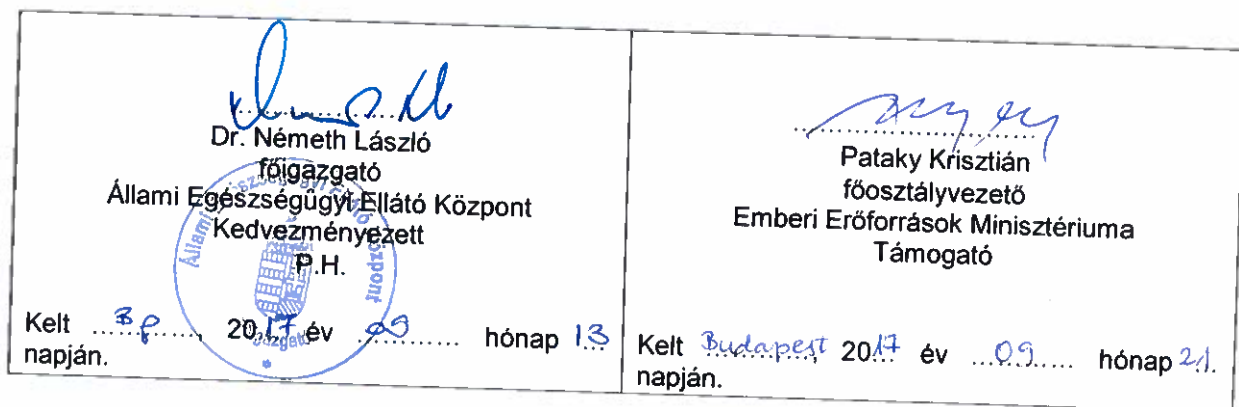 Dr. Németh László
főigazgató
Állami Egészségügyi Ellátó Központ
Kedvezményezett
P.H.
Kelt Bp, 2017 év 09 hónap 13
napján.
Pataky Krisztián
főosztályvezető
Emberi Erőforrások Minisztériuma
Támogató
Kelt Budapest, 2017 év 09 hónap 21.
napján.